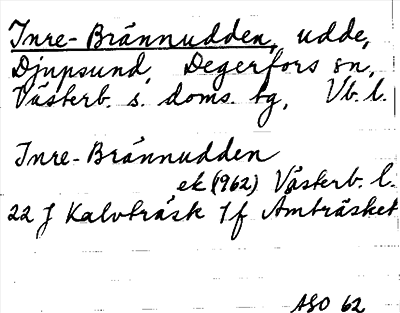 Inre-Brännudden, udde,
Djupsund, Degerfors sn,
Västerb. s. doms. tg, Vb. l.
Inre-Brännudden
ek (1962) Västerb. l.
22 J Kalvträsk 7f Amträsket
ASO 62